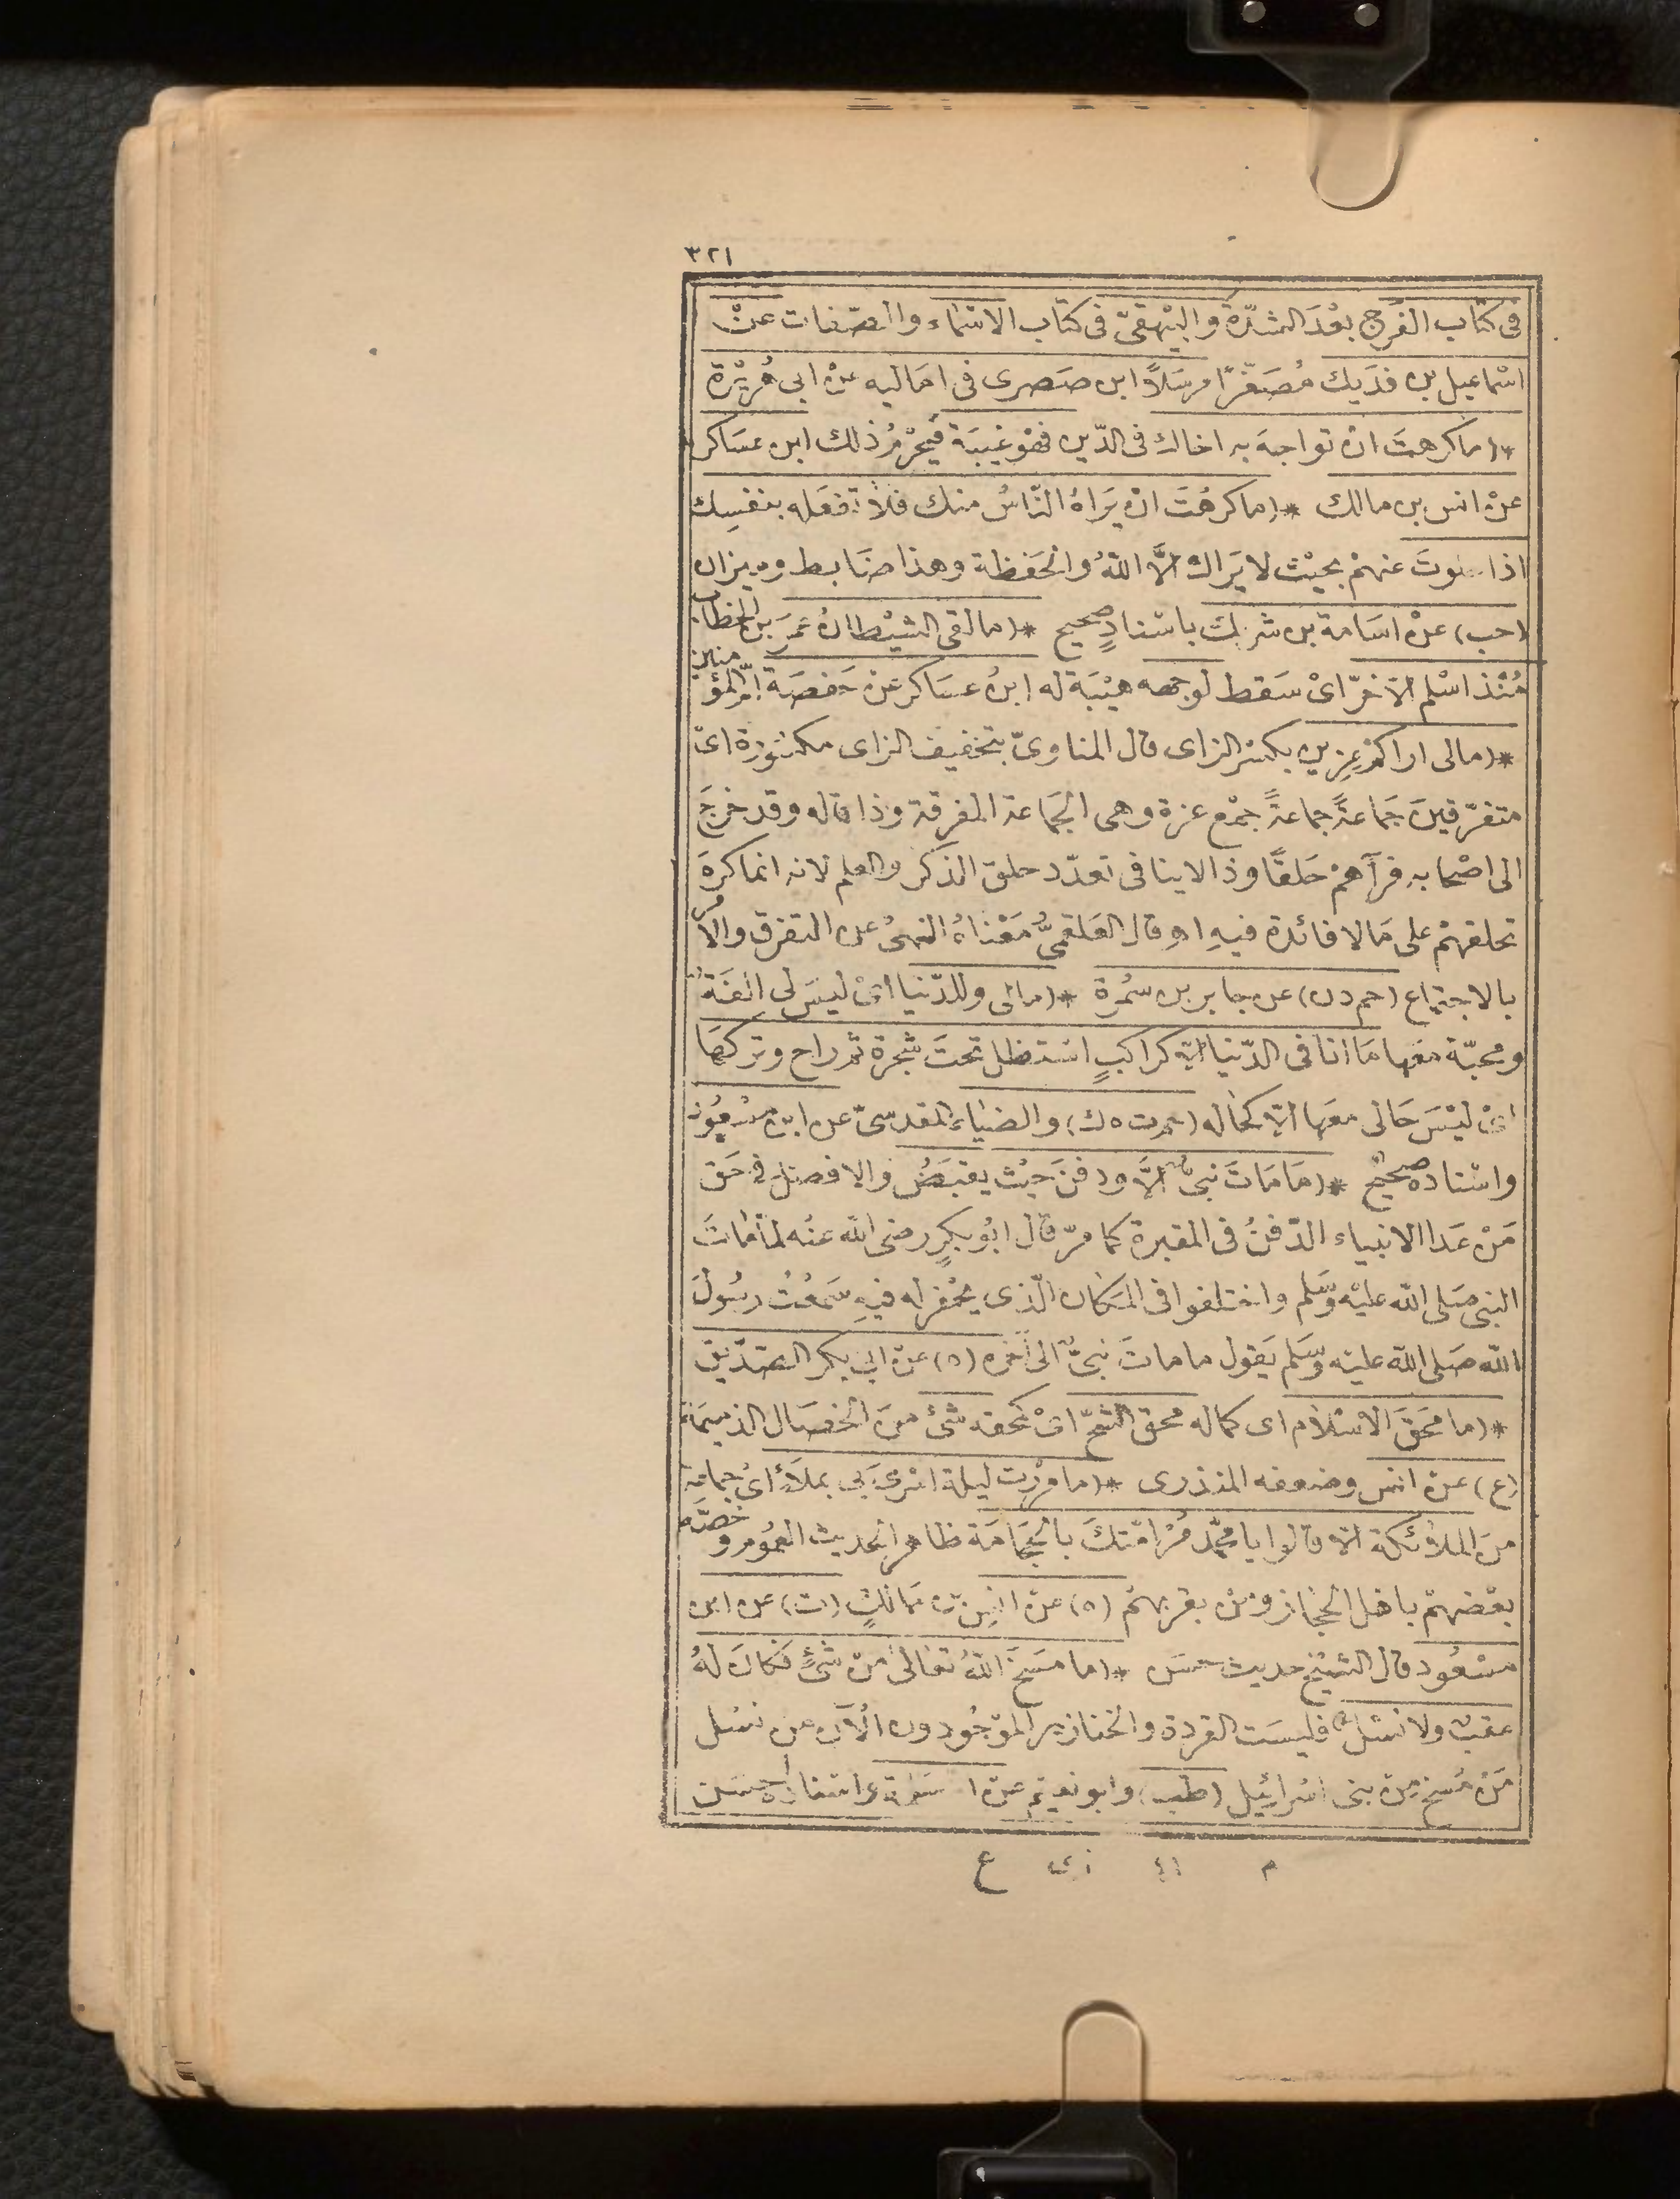 ٣٢١
فى كتاب الفرج بعْدَ الشدّة والبيْهقىّ فى كتاب الاسْماء والصّفات عنْ
اسْماعيل بن فدَيك مُصَغّرًا مرسَلاً ابن صَصرى فى امَاليه عنْ ابى هُريْرة
*(ما كرهتَ انْ تواجهَ به اخاك فى الدّين فهْو غيبَة فيَحْرُمُ ذلك ابن عسَاكر
عنْ انس بن مالك *(ما كرهْتَ انْ يَرَاهُ النّاسُ منك فلاَ تفعَله بنفسِك
اذا خلوتَ عنهمْ بحيْث لا يَراك الاَّ اللهُ والحَفظة وهذا ضَابط وميزان
(حب) عنْ اسَامة بن شريك باسْنادٍ صحيح *(ما لقى الشيْطانُ عمَرَ بن الخطاب
مُنْذ اسْلم الاّ خرّ اىْ سَقط لوجهه هيْبَة له ابنُ عسَاكر عنْ حَفصَة امّ المؤمنين
*(مالى اراكمْ عِزين بكسْر الزاى قال المناوىّ بتخفيف الزاى مكسُورة اىْ
متفرّقينَ جَمَاعةً جماعةً جمْع عزة وهى الجَماعة المفرقة وذا قاله وقد خرجَ
الى اصْحابهِ فرآهمْ حَلقًا وذا لا ينافى تعدّد حلق الذكر والعلم لانه انما كرهَ
تحلقهمْ على مَا لا فائدة فيهِ اهِ وقال العَلقمىُّ مَعْناهُ النهىُ عن التفرق والامر
بالاجتماع (حم د ن) عن جابر بن سمُرة *(مالى وللدّنيا اىْ ليسَ لى الفَةٌ
ومحبّة معَها مَا انا فى الدّنيا الاّ كراكبٍ اسْتظل تحتَ شجرة ثم راح وتركهَا
اىْ ليْسَ حَالى معَها الاّ كحاله (حم ت ه ك) والضياء المقدسىّ عن ابن مسْعُود
واسْناده صحيحٌ *(مَا مَاتَ نبىٌّ الاَّ ودفنَ حَيْث يقبَضُ والافضل فى حَق
مَنْ عَدا الانبياء الدّفنُ فى المقبرة كما مرّ قال ابُو بكرٍ رضى الله عنْه لمّا ماتَ
النبى صَلى الله عليْه وسَلم واختلفوا فى المَكان الّذى يحْفر له فيهِ سَمعْتُ رسُولَ
الله صَلى الله عليْه وسَلم يَقول ما ماتَ نبىٌّ الى آخره (ه) عنْ ابى بكر الصّدّيق
*(ما مَحَقَ الاسْلام اى كماله محق الشحّ اىْ كمحقه شئ منَ الخصَال الذميمَة
(ع) عنْ انس وضعفه المنذرى *(ما مرْرت ليلة اسْرىَ بى بملأٍ اىْ جماعة
منَ الملائكة الاّ قالوا يا محمّد مُرْ امّتكَ بالحِجَامَة ظاهر الحديث العُموم وخصّه
بعْضهمْ باهل الحجاز ومنْ بقربهمْ (ه) عنْ انس بن مَالكٍ (ت) عن ابن
مسْعُود قال الشيْخ حديث حسَن *(ما مسَخَ اللهُ تعَالى منْ شئٍ فكانَ لهُ
عقبٌ ولا نسْلٌ فليسَت القردة والخنازير الموْجُودون الآن من نسْل
مَنْ مُسخ منْ بنى اسْرائيل (طب) وابو نعيْم عنْ امّ سَلمة واسْناده حسَن